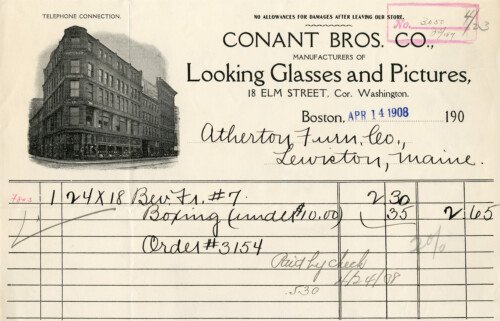 TELEPHONE CONNECTION.
NO ALLOWANCES FOR DAMAGES AFTER LEAVING OUR STORE.
No.
4/23
CONANT BROS. CO.,
MANUFACTURERS OF
Looking Glasses and Pictures,
18 ELM STREET, Cor. Washington.
Boston, APR 14 1908 190
Atherton Furn. Co.,
Lewiston, Maine.
1 24 X 18 Bev. Fr. #7. 2 30
Boxing (under $10.00) 35 2.65
Order #3154 2%
Paid by check
530 4/24/08